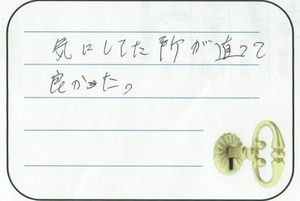 気にしてた所が直って
良かった。